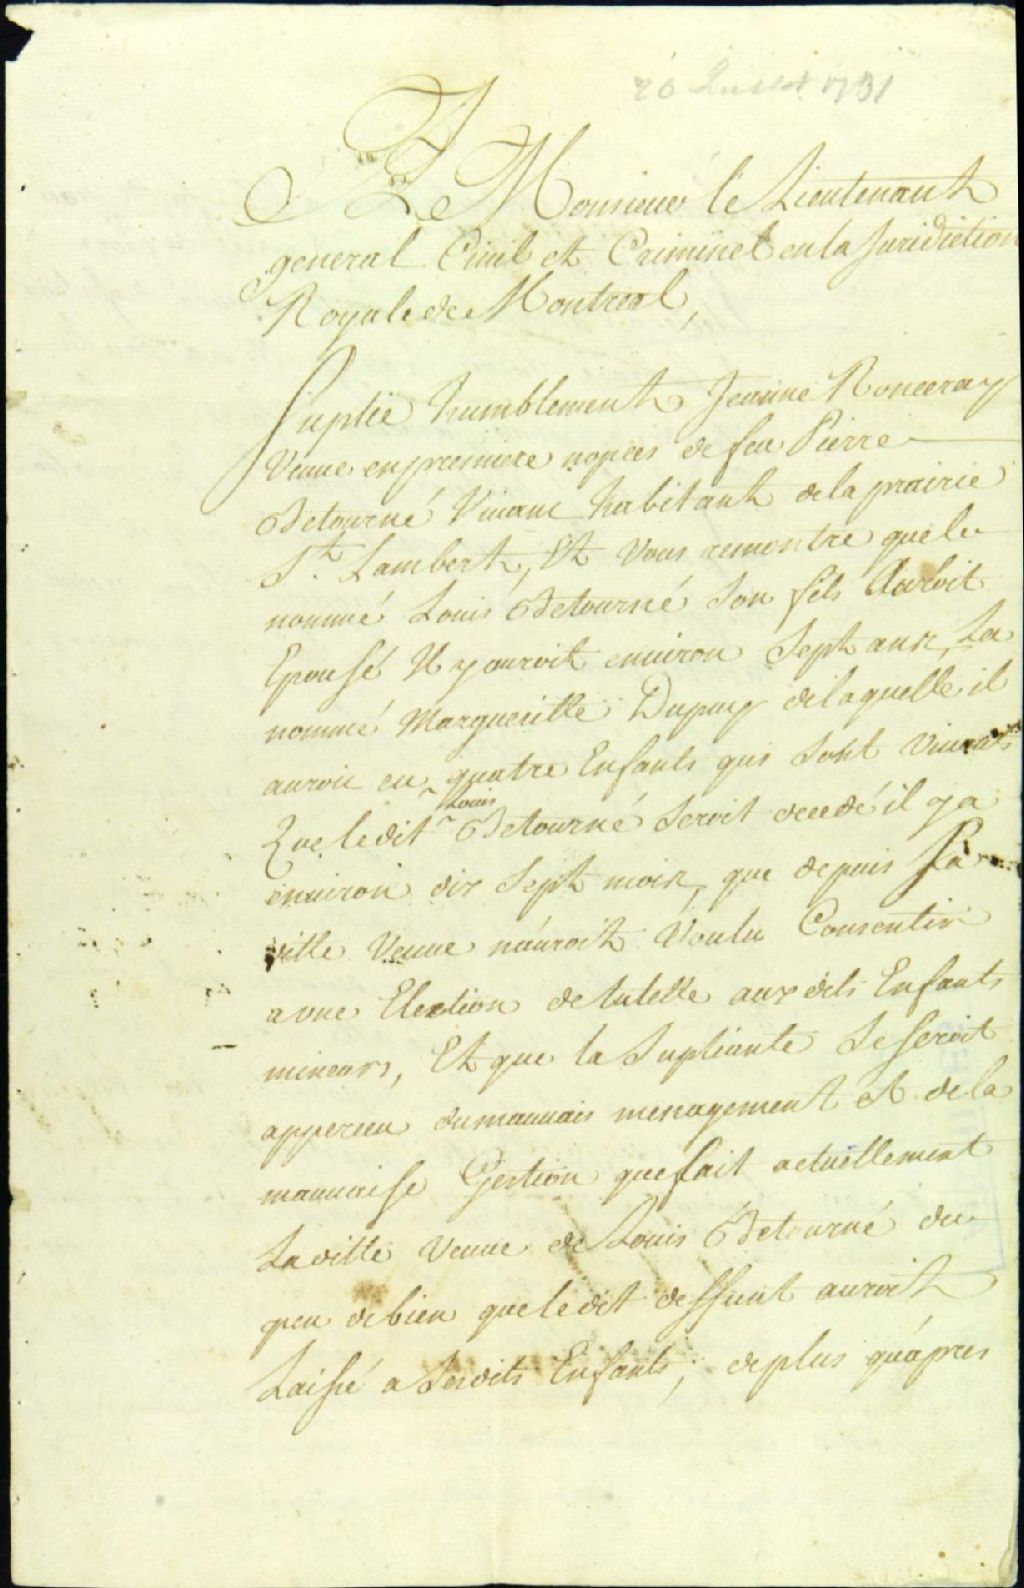 26 Juillet 1731
A Monsieur le Lieutenant
general Civil et Criminel en la Juridiction
Royale de Montreal,
Suplie humblement Jeanne Ronceray
Veuve en premiere nopces de feu Pierre
Detourné Vivant habitant de la prairie
St. Lambert, Et Vous remontre que le
nommé Louis Detourné Son fils Auroit
Epousé Il y auroit environ Sept ans, La
nommé Margueritte Dupuy de laquelle il
auroit eu quatre Enfants qui Sont Vivants
Que ledit Louis Detourné Seroit decedé il y a
environ dix Sept mois, que depuis Sa
ditte Veuve n'auroit Voulu Consentir
a une Election de tutelle aux dits Enfants
mineurs, Et que la Supliante Se Seroit
apperceu du mauvais menagement et de la
mauvaise Gestion que fait actuellement
La ditte Veuve de Louis Detourné du
peu de bien que ledit deffunt auroit
Laissé a Sesdits Enfants, de plus qu'apres